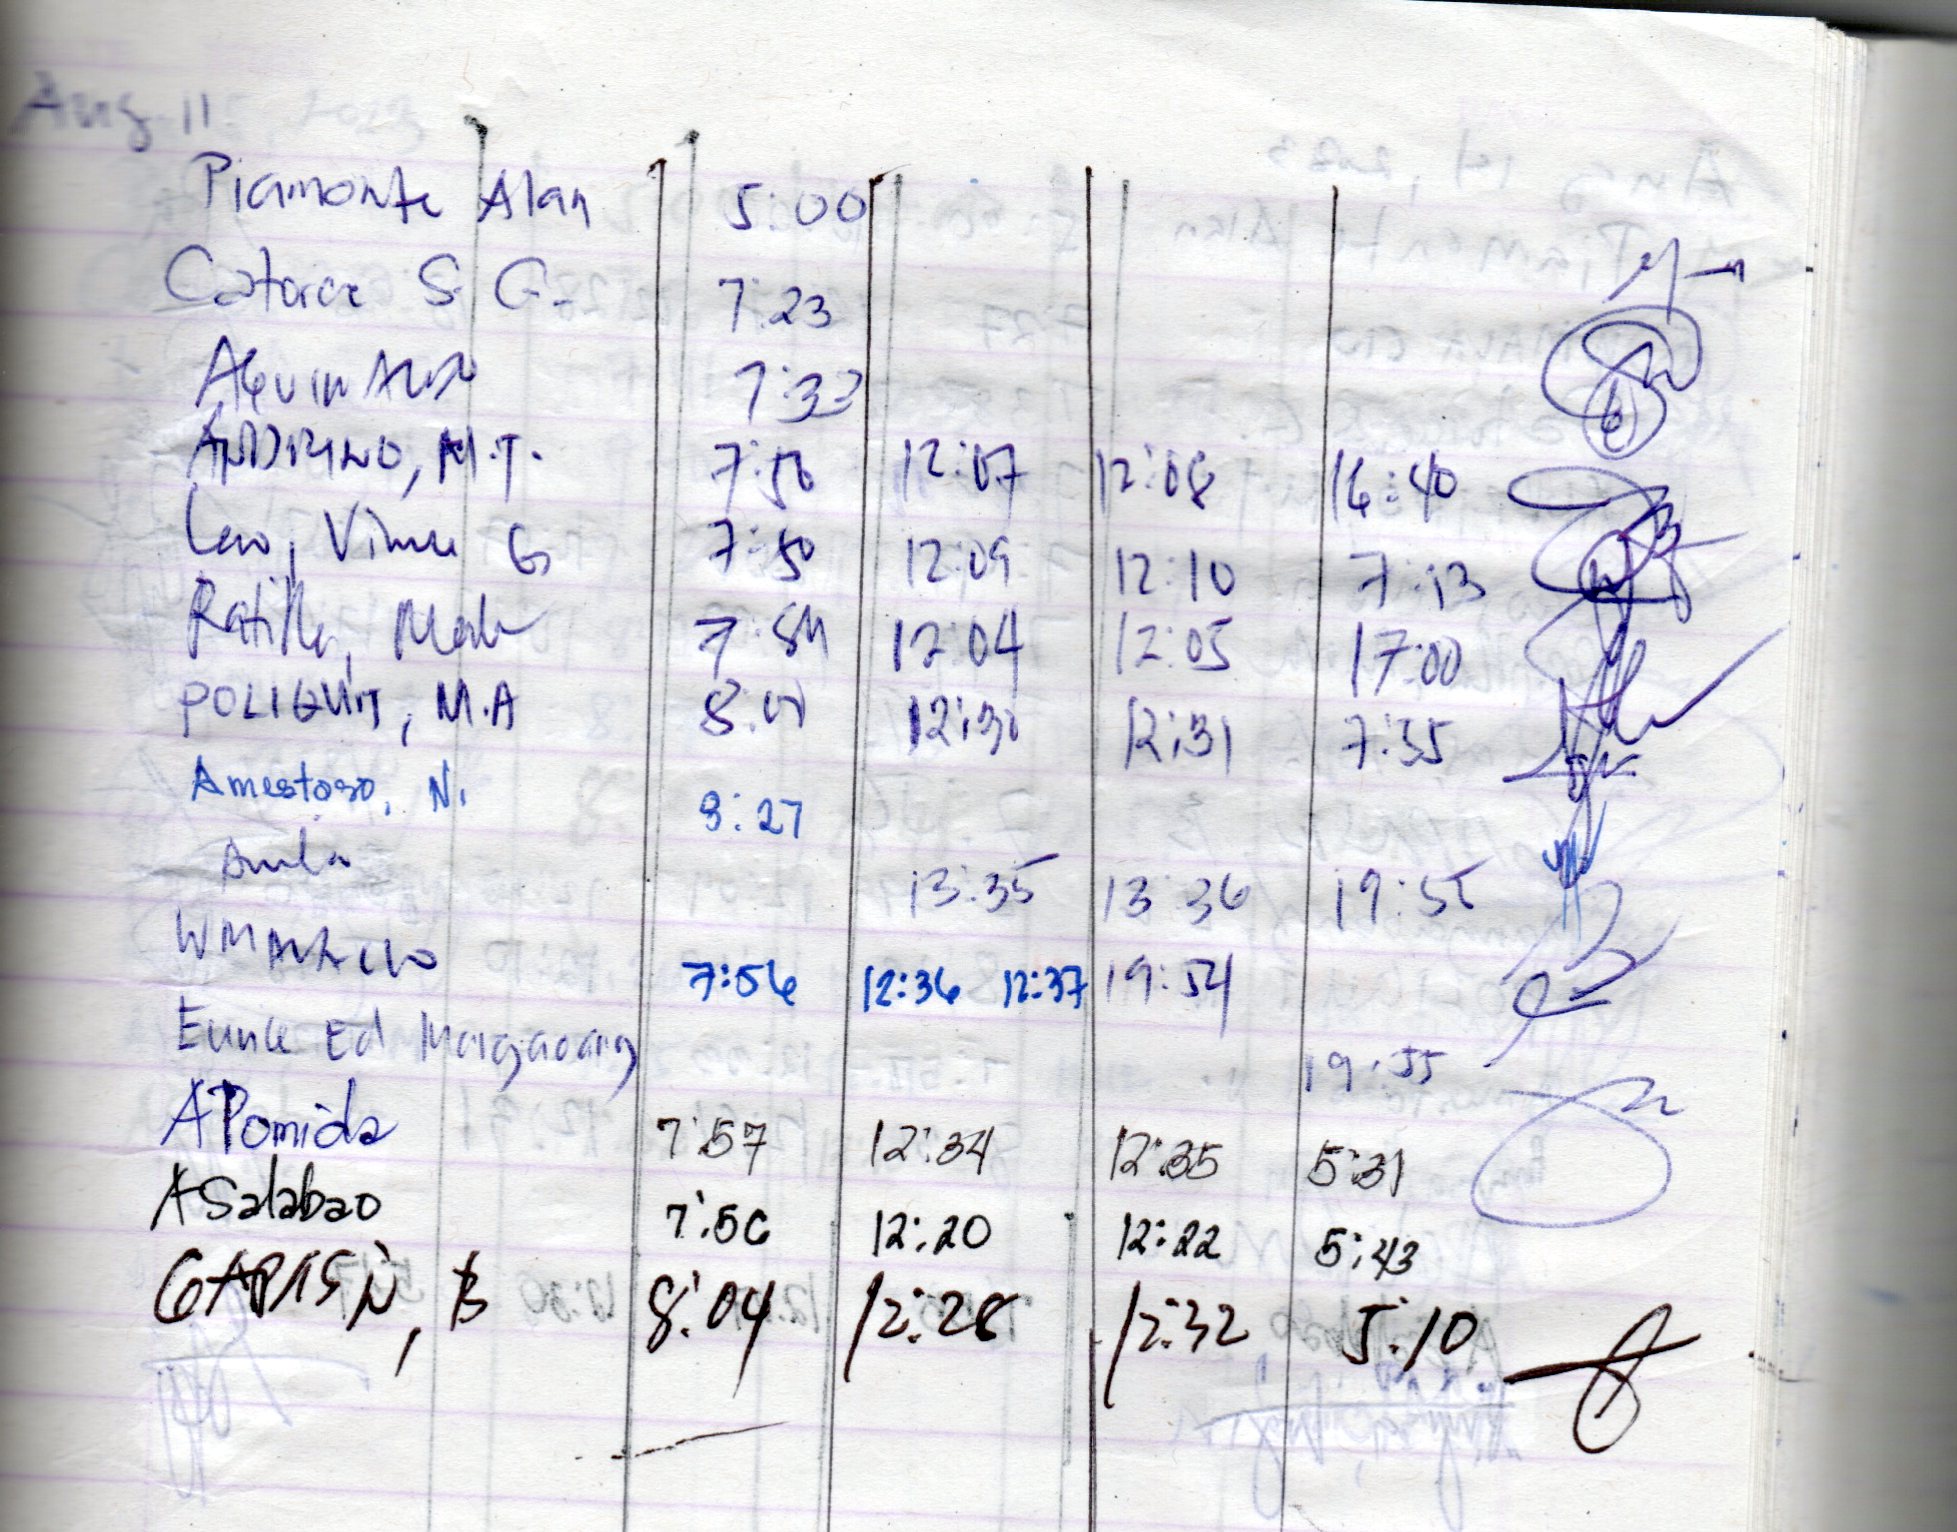 Aug 11
Piamonte Alan 5:00
Catorce S. G. 7:23
7:33
ANDRINO, M.T. 7:50 12:07 12:08 16:40
G 7:50 12:09 12:10 7:13
Ratilla, 7:54 12:04 12:05 17:00
POLIGUIT, M.A 8:00 12:30 12:31 7:35
Amestoso, N. 8:27
13:35 13 36 19:55
7:56 12:36 12:37 19:54
Ed Margaoang 19:55
APomida 7:57 12:34 12:35 5:31
ASalabao 7:56 12:20 12:22 5:43
B 8:04 12:28 12:32 5:10